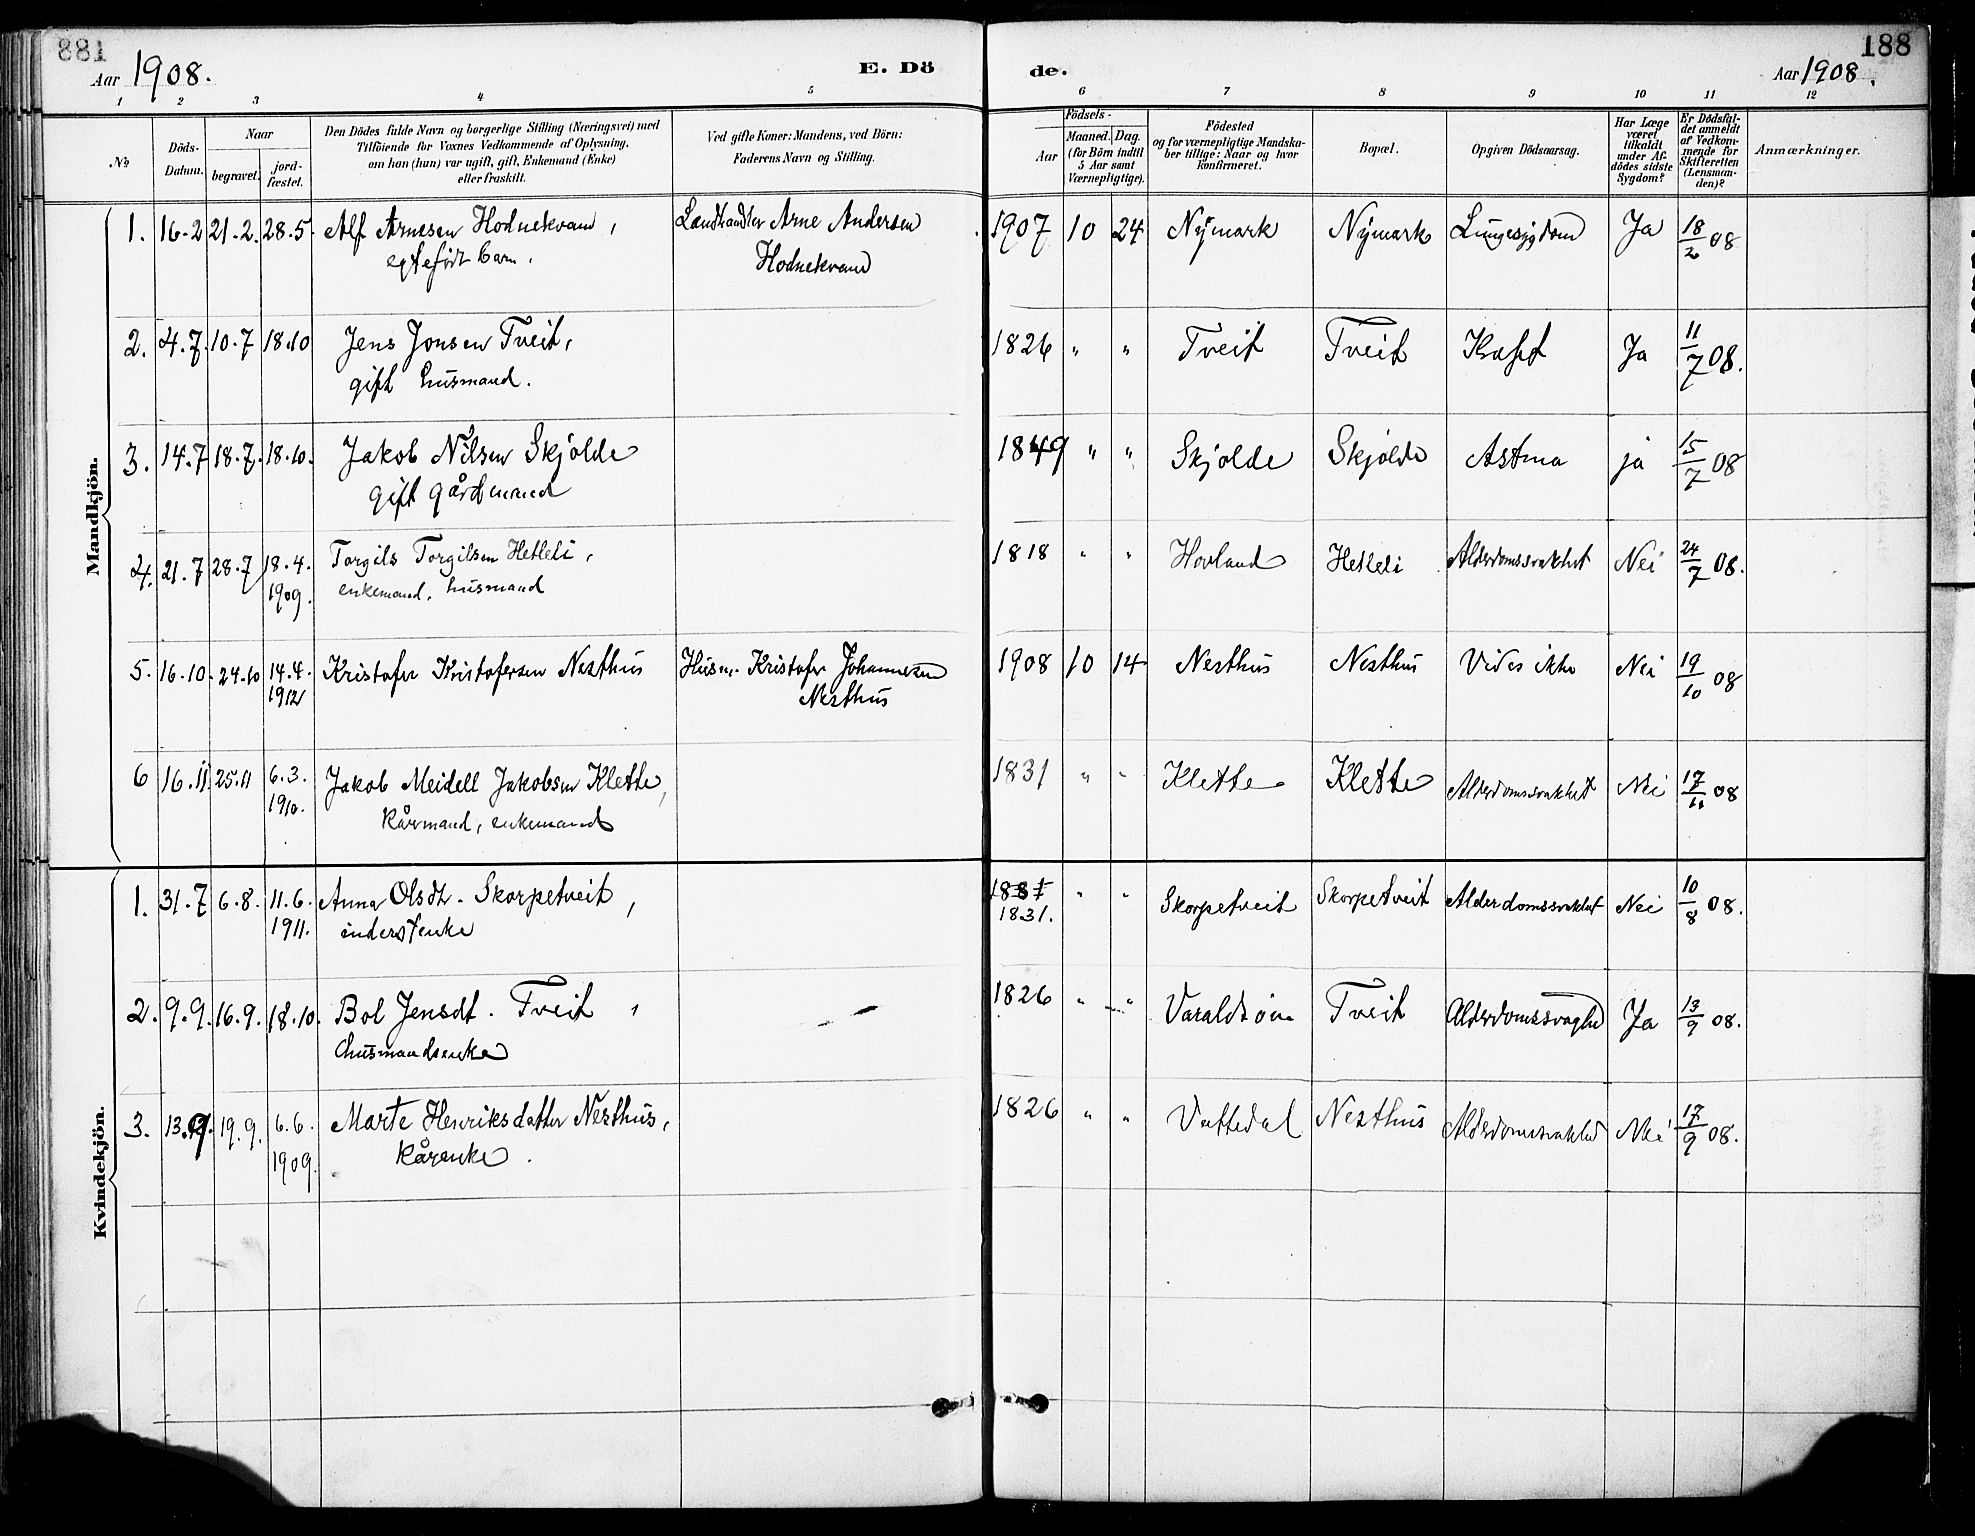 881
188
Aar 1908.
E. Dö
de.
Aar 1908.
1 2 3 4 5 6 7 8 9 10 11 12
№
Döds-
Datum.
Naar
begravet.
jord-
fæstet.
Den Dödes fulde Navn og borgerlige Stilling (Næringsvei) med
Tilföiende for Voxnes Vedkommende af Oplysning,
om han (hun) var ugift, gift, Enkemand (Enke)
eller fraskilt.
Ved gifte Koner: Mandens, ved Börn:
Faderens Navn og Stilling.
Födsels-
Aar
Maaned. Dag.
(for Börn indtil
5 Aar samt
Værnepligtige).
Födested
og for værnepligtige Mandska-
ber tillige: Naar og hvor
konfirmeret.
Bopæl.
Opgiven Dödsaarsag.
Har Læge
været
tilkaldt
under Af-
dödes sidste
Sygdom?
Er Dödsfal-
det anmeldt
af Vedkom-
mende for
Skifteretten
(Lensman-
den)?
Anmærkninger.
Mandkjön.
1. 16.2 21.2. 28.5. Alf Arnesen Hodnekvam, Landhandler Arne Andersen 1907 10 24 Nymark Nymark Lungesygdom Ja 18/2 08
egtefödt barn. Hodnekvam
2. 4.7. 10.7 18.10 Jens Jonsen Tveit, 1826 " " Tveit Tveit Kræft Ja 11/7 08.
gift husmand.
3. 14.7 18.7. 18.10. Jakob Nilsen Skjölde 1849 " " Skjolde Skjölde Astma ja 15/7 08
gift gårdmand
4. 21.7 28.7 18.4. Torgils Torgilsen Hetleli, 1818 " " Hovland Hetleli Alderdomssvakhet Nei 24/7 08.
1909. enkemand, husmand
5. 16.10. 24.10 14.4. Kristofer Kristofersen Nesthus Husm. Kristofer Johannesen 1908 10 14 Nesthus Nesthus Vides ikke Nei 19/10 08
1912 Nesthus
6 16.11 25.11 6.3. Jakob Meidell Jakobsen Klette, 1831 " " Klette Klette Alderdomssvakhet Nei 17/11 08
1910. kårmand, enkemand
Kvindekjön.
1. 31.7 6.8. 11.6. Anna Olsdt. Skorpetveit, 1881 " " Skorpetveit Skorpetveit Alderdomssvakhet Nei 10/8 08.
1911. inderstenke 1831.
2. 9.9. 16.9. 18.10. Bol Jensdt. Tveit, 1826 " " Varaldsöen Tveit Alderdomssvaghed Ja 13/9 08.
husmandsenke
3. 13.9 19.9. 6.6. Marte Henriksdatter Nesthus, 1826 " " Vattedal Nesthus Alderdomssvakhed Nei 17/9 08.
1909. kårenke.